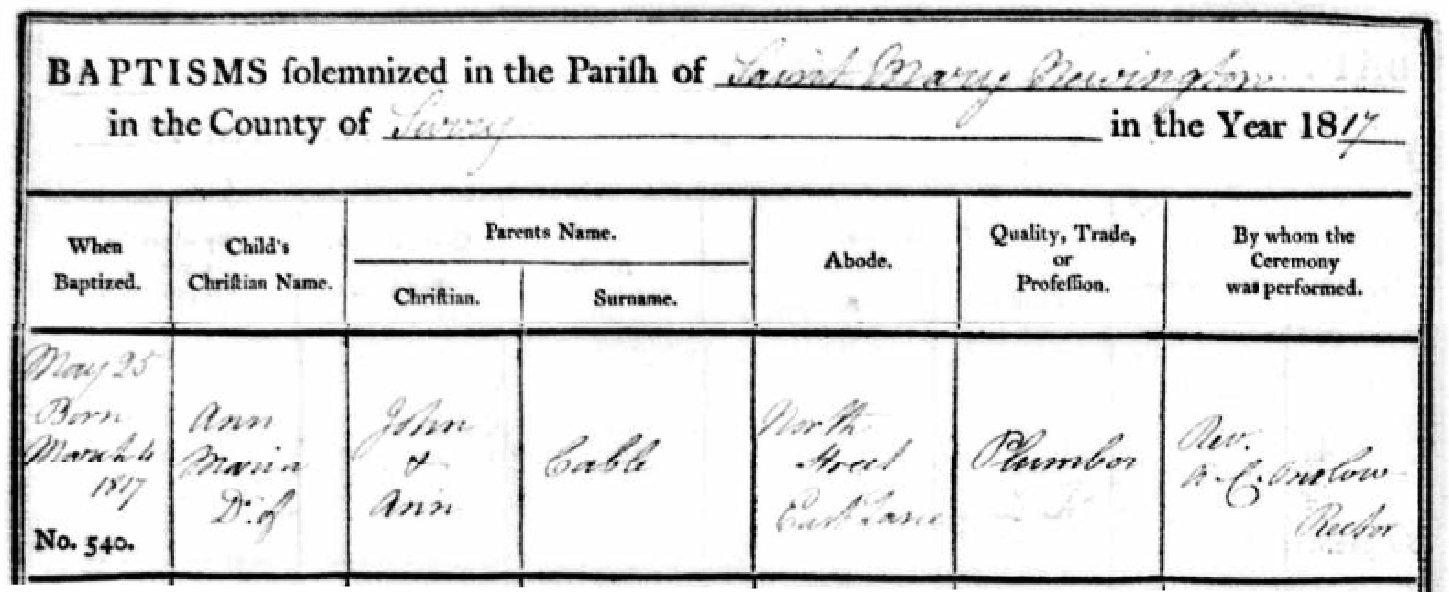 BAPTISMS ſolemnized in the Pariſh of Saint Mary Newington
in the County of Surry in the Year 1817
When
Baptized.
Child's
Chriſtian Name.
Parents Name.
Chriſtian.
Surname.
Abode.
Quality, Trade,
or
Profeſſion.
By whom the
Ceremony
was performed.
May 25
Born
March 4
1817
No. 540.
Ann
Maria
Dr. of
John
&
Ann
Cable
North
Street
East Lane
Plumber
Rev.
A. C. Onslow
Rector